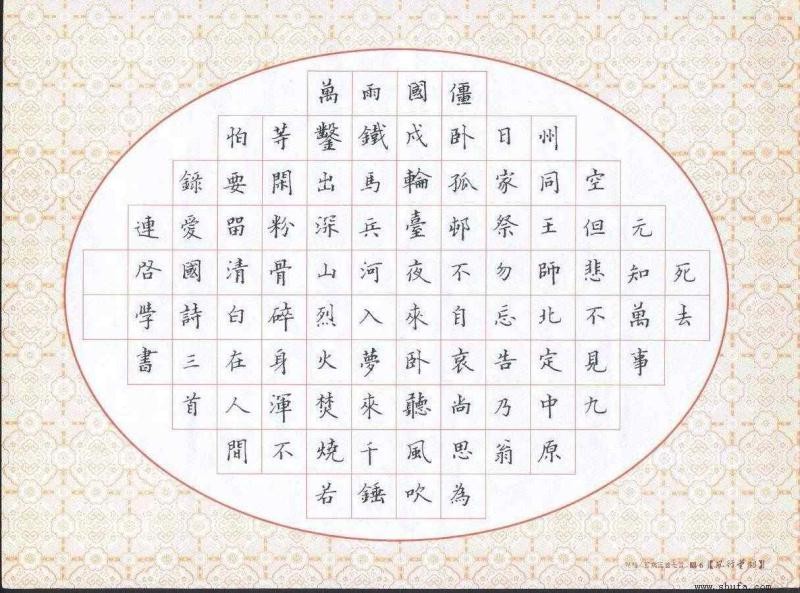 死去
元知萬事
空但悲不見九
州同王師北定中原
日家祭勿忘告乃翁
僵卧孤邨不自哀尚思為
國戍輪臺夜來卧聽風吹
雨鐵馬兵河入夢來千錘
萬鑿出深山烈火焚燒若
等閑粉骨碎身渾不
怕要畱清白在人間
錄愛國詩三首
連启學書
www.shufa.com